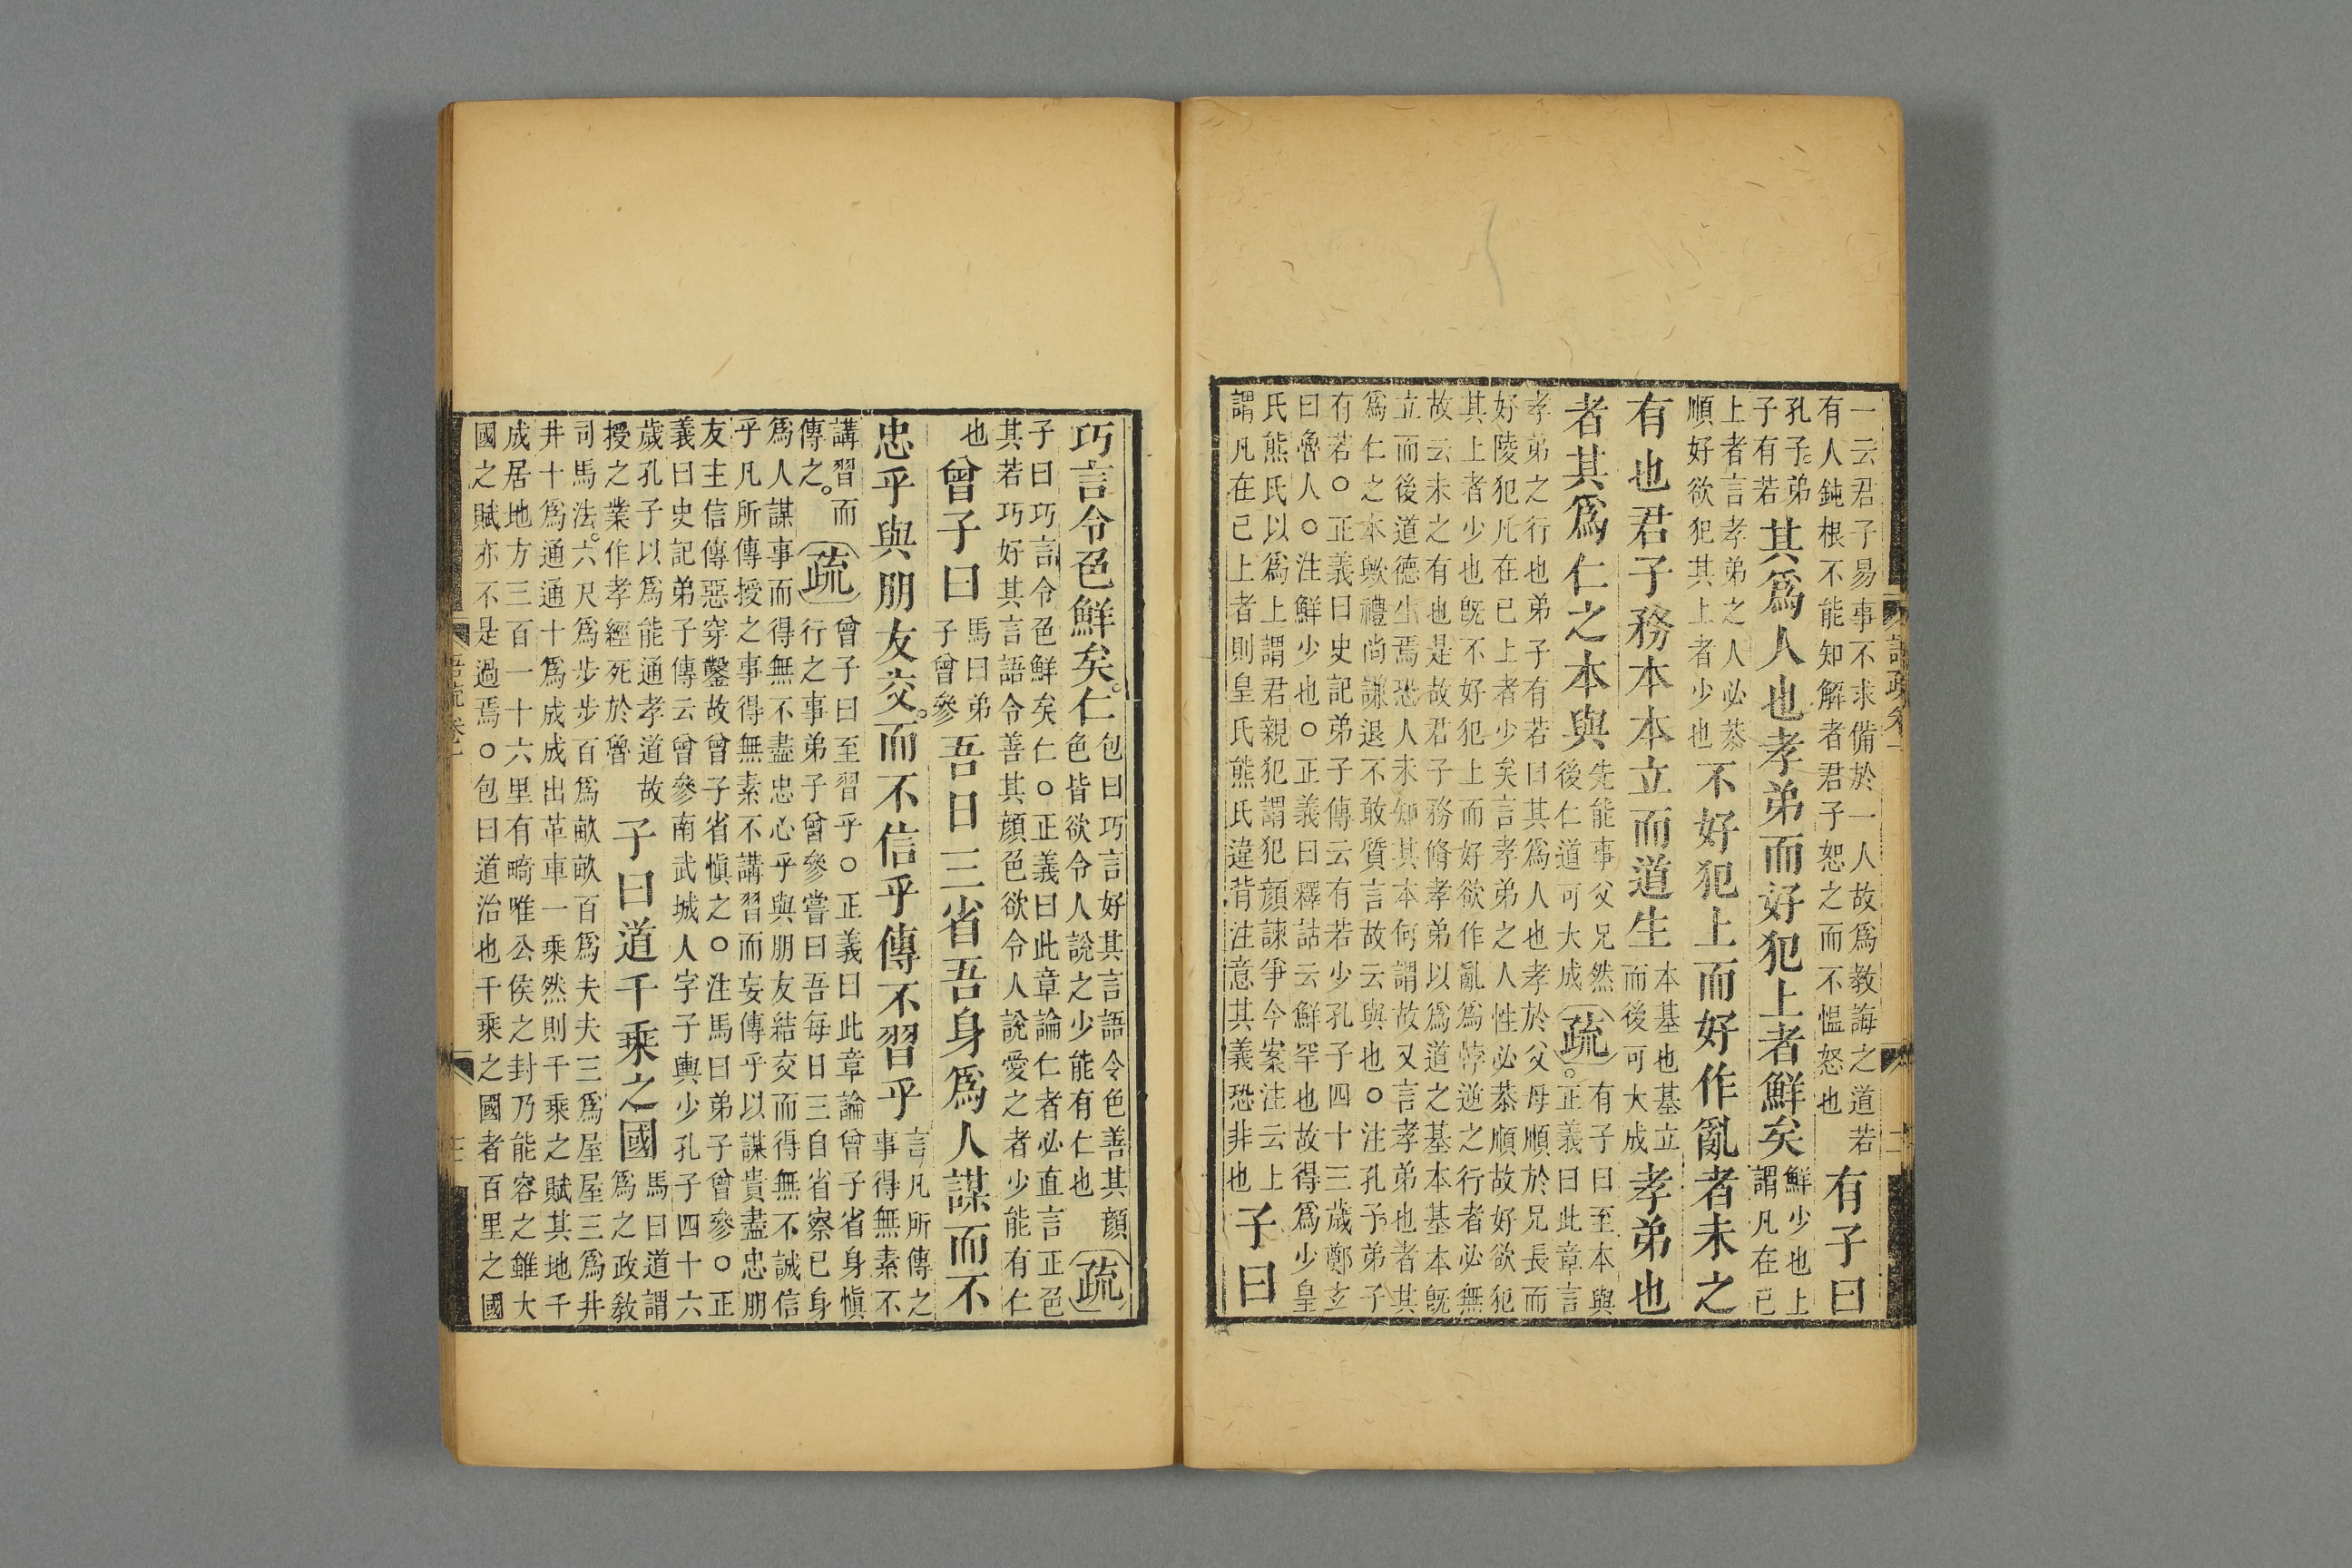 一云君子易事不求備於一人故爲教誨之道若
有人鈍根不能知解者君子恕之而不慍怒也
有子曰
孔子弟
子有若
其爲人也孝弟而好犯上者鮮矣
鮮少也上
謂凡在已
上者言孝弟之人必恭
順好欲犯其上者少也
不好犯上而好作亂者未之
有也君子務本本立而道生
本基也基立
而後可大成
孝弟也
者其爲仁之本與
先能事父兄然
後仁道可大成
疏
有子曰至本與
○正義曰此章言
孝弟之行也弟子有若曰其爲人也孝於父母順於兄長而
好陵犯凡在已上者少矣言孝弟之人性必恭順故好欲犯
其上者少也旣不好犯上而好欲作亂爲悖逆之行者必無
故云未之有也是故君子務脩孝弟以爲道之基本基本旣
立而後道德生焉恐人未知其本何謂故又言孝弟也者其
爲仁之本歟禮尚謙退不敢質言故云與也○注孔子弟子
有若○正義曰史記弟子傳云有若少孔子四十三歲鄭玄
曰魯人○注鮮少也○正義曰釋詁云鮮罕也故得爲少皇
氏熊氏以爲上謂君親犯謂犯顏諫爭今案注云上
謂凡在已上者則皇氏熊氏違背注意其義恐非也
子曰
巧言令色鮮矣仁
包曰巧言好其言語令色善其顏
色皆欲令人說之少能有仁也
疏
子曰巧言令色鮮矣仁○正義曰此章論仁者必直言正色
其若巧好其言語令善其顏色欲令人說愛之者少能有仁
也
曾子曰
馬曰弟
子曾參
吾日三省吾身爲人謀而不
忠乎與朋友交而不信乎傳不習乎
言凡所傳之
事得無素不
講習而
傳之
疏
曾子曰至習乎○正義曰此章論曾子省身愼
行之事弟子曾參嘗曰吾每日三自省察已身
爲人謀事而得無不盡忠心乎與朋友結交而得無不誠信
乎凡所傳授之事得無素不講習而妄傳乎以謀貴盡忠朋
友主信傳惡穿鑿故曾子省愼之○注馬曰弟子曾參○正
義曰史記弟子傳云曾參南武城人字子輿少孔子四十六
歲孔子以爲能通孝道故
授之業作孝經死於魯
子曰道千乘之國
馬曰道謂
爲之政敎
司馬法六尺爲步步百爲畝畝百爲夫夫三爲屋屋三爲井
井十爲通通十爲成成出革車一乘然則千乘之賦其地千
成居地方三百一十六里有畸唯公侯之封乃能容之雖大
國之賦亦不是過焉○包曰道治也千乘之國者百里之國